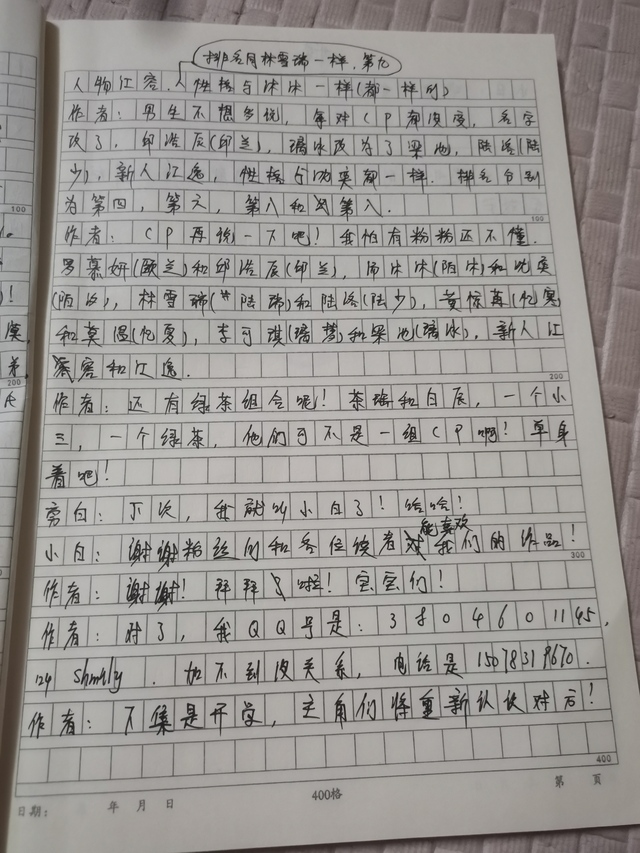 排名同林雪瑞一样.第九
人物江客.人性格与沐沐一样(都一样的)
作者:男生不想多说,每对CP都没变,名字
改了,邱浩辰(邱兰),璃冰改为了梁池,陆洛(陆
少),新人江逸,性格与以莫都一样.排名分别
为第四,第六,第八和第八.
作者:CP再说一下吧!我怕有粉粉还不懂.
慕妍(欧兰)和邱浩辰(邱兰),沐沐(陌沐)和
(陌汐),林雪瑞(陆瑞)和陆洛(陆少),黄惊(忆寒)
和莫温(忆夏),李可琪(璃梦)和梁池(璃冰),新人江
客和江逸.
作者:还有绿茶组合呢!茶瑶和白辰,一个小
三,一个绿茶,他们可不是一组CP啊!单身
着吧!
旁白:下次,我就叫小白了!哈哈!
小白:谢谢粉丝们和各位读者能喜欢我们的作品!
作者:谢谢!拜拜啦!宝宝们!
作者:对了,我QQ号是:3804601145,
shmily.加不到没关系,电话是15078319670.
作者:下集是开学,主角们将重新认识对方!
100
200
300
400
日期: 年 月 日
400格
第 页